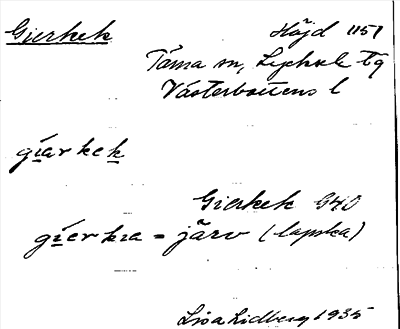 Gierkek Höjd 1151
Tärna sn, Lycksele tg
Västerbottens l
gíarkek
Gierkek G40
gíerkia = järv (lapska)
Lisa Lidberg 1935